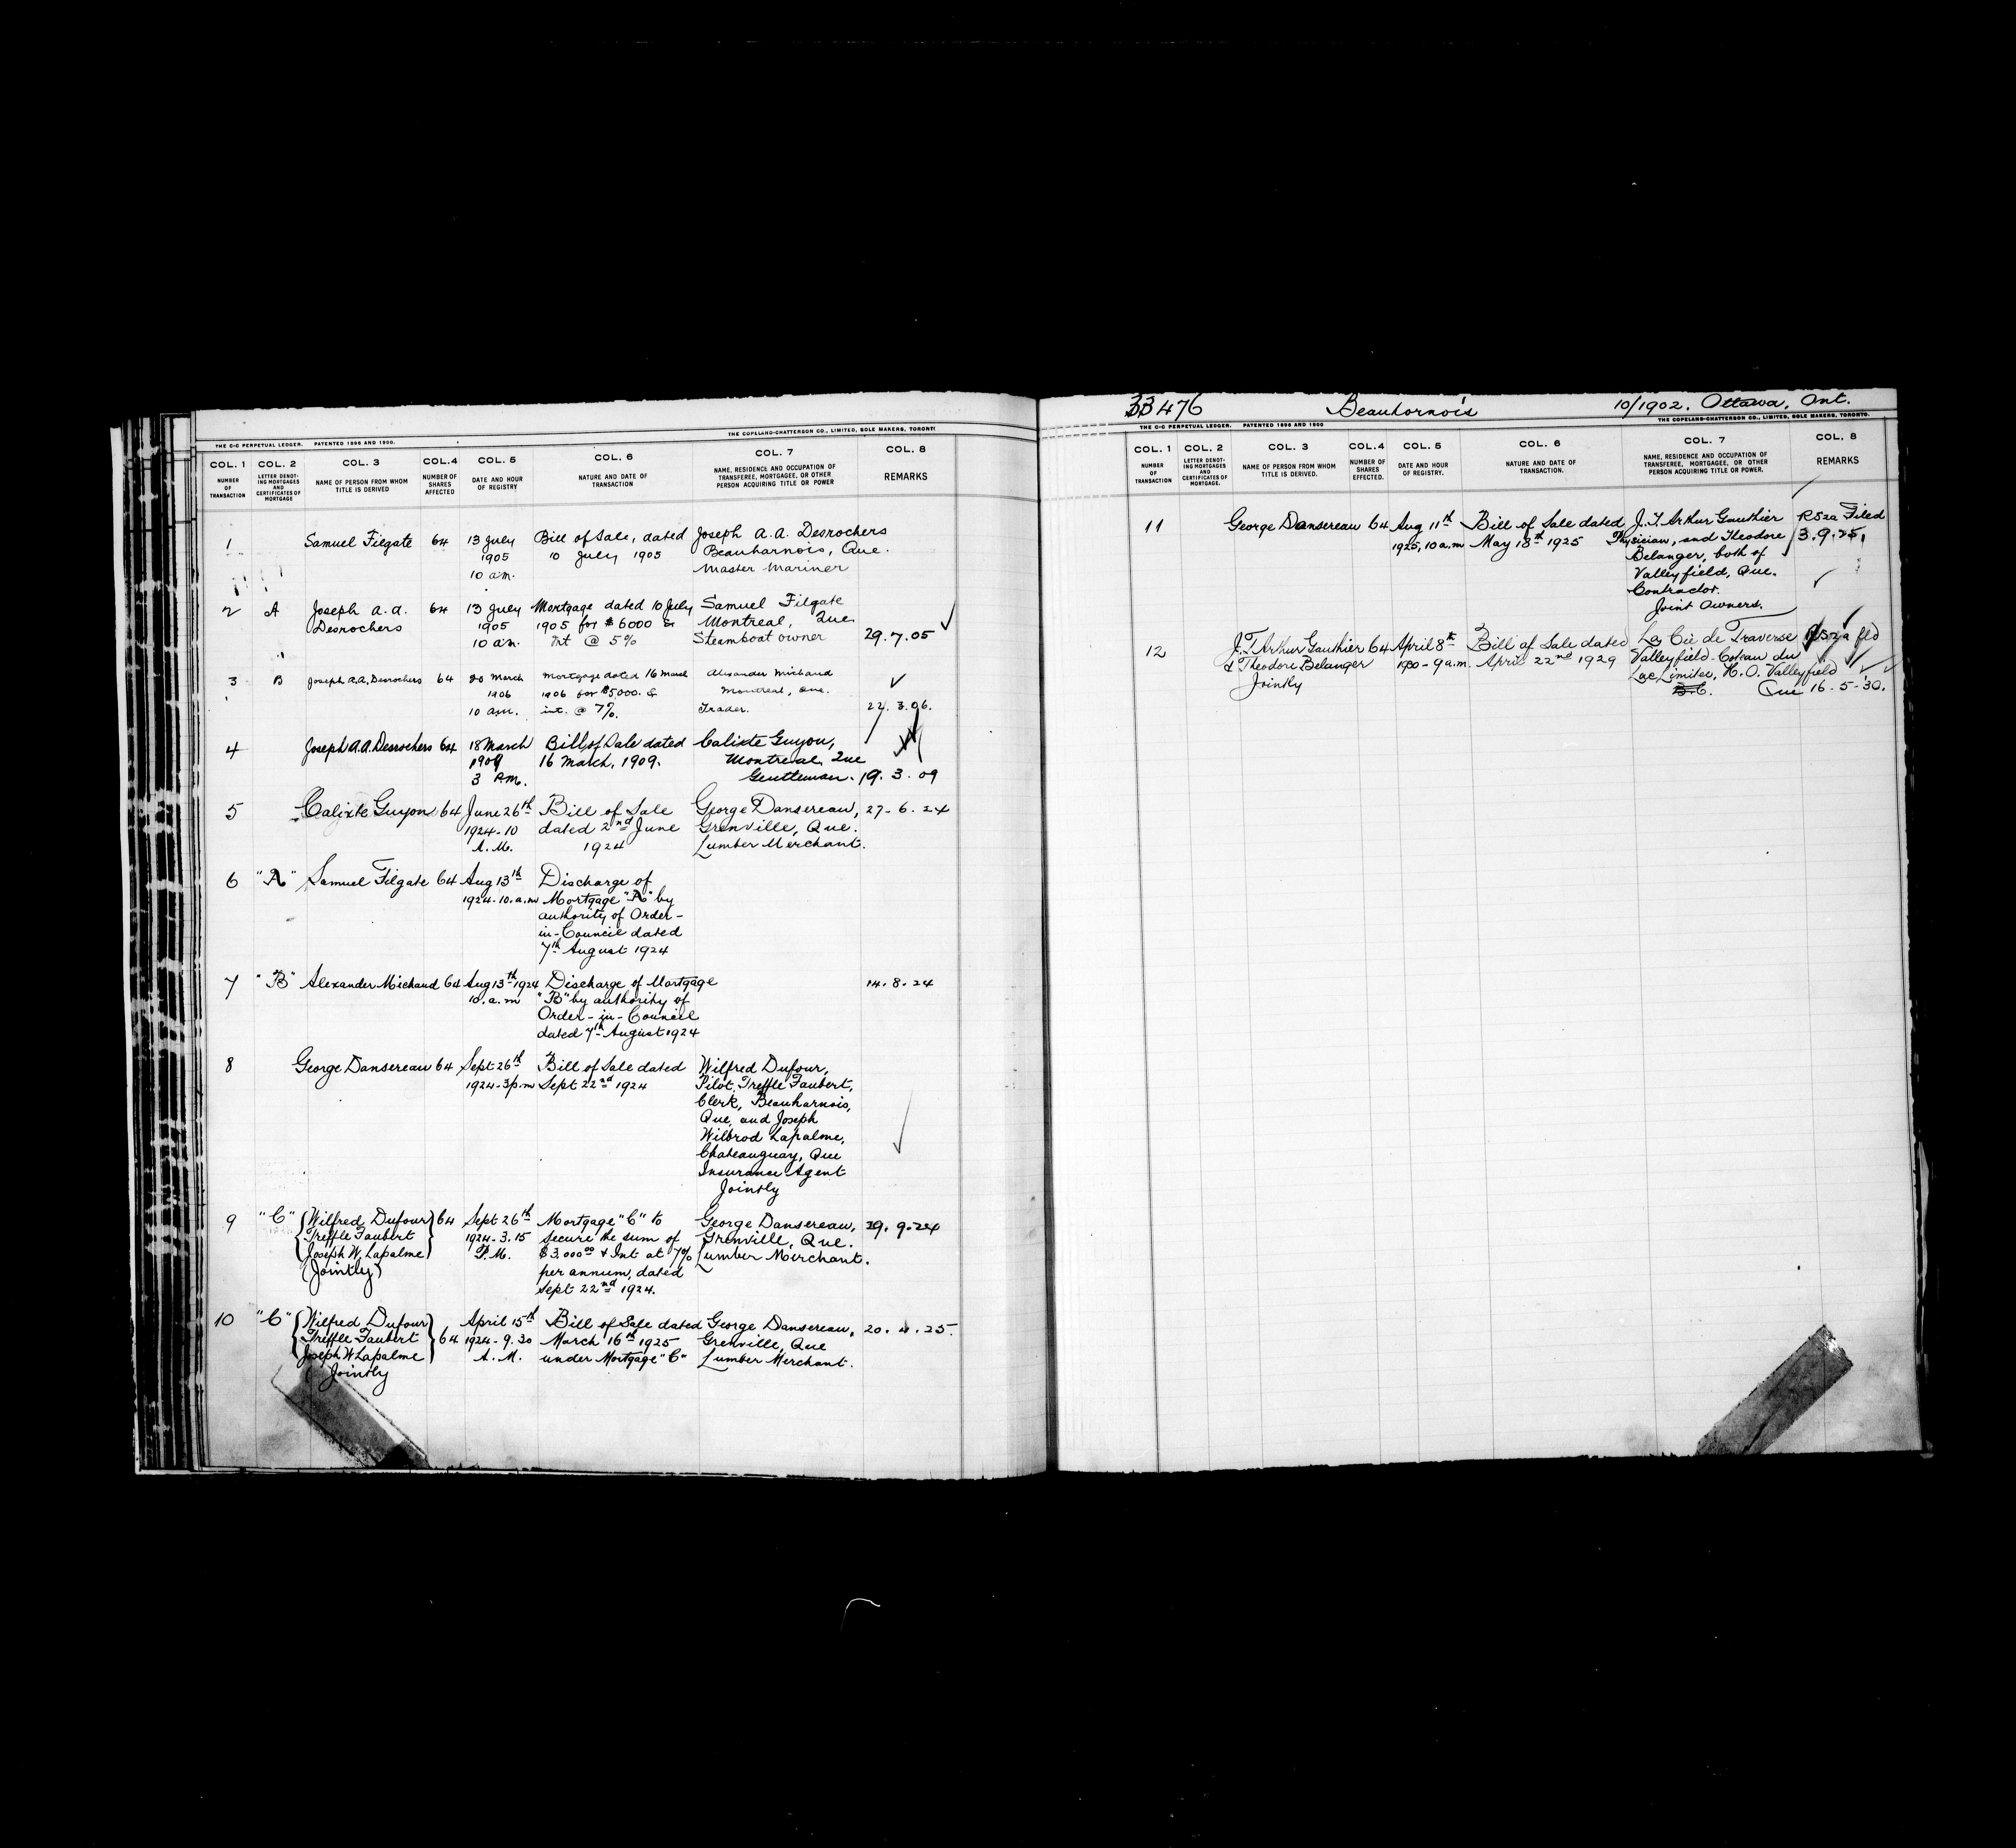 THE C-C PERPETUAL LEDGER. PATENTED 1896 AND 1900. THE COPELAND-CHATTERSON CO., LIMITED, SOLE MAKERS, TORONTO
COL. 1 COL. 2 COL. 3 COL. 4 COL. 5 COL. 6 COL. 7 COL. 8
NUMBER OF TRANSACTION
LETTER DENOTING MORTGAGES AND CERTIFICATES OF MORTGAGE
NAME OF PERSON FROM WHOM TITLE IS DERIVED
NUMBER OF SHARES AFFECTED
DATE AND HOUR OF REGISTRY
NATURE AND DATE OF TRANSACTION
NAME, RESIDENCE AND OCCUPATION OF TRANSFEREE, MORTGAGEE, OR OTHER PERSON ACQUIRING TITLE OR POWER
REMARKS
1 Samuel Filgate 64 13 July Bill of Sale, dated Joseph A. A. Desrochers
1905 10 July 1905 Beauharnois, Que.
10 am. Master Mariner
2 A Joseph A. A. 64 13 July Mortgage dated 10 July Samuel Filgate
Desrochers 1905 1905 for $6000 & Montreal, Que
10 am. Int @ 5% Steamboat owner 29.7.05
3 B Joseph A.A. Desrochers 64 20 March Mortgage dated 16 March Alexander Michaud
1906 1906 for $5000. & Montreal, Que.
10 am. int. @ 7%. Trader. 22.3.06.
4 Joseph A.A. Desrochers 64 18 March Bill of Sale dated Calixte Guyon,
1909 16 March, 1909. Montreal, Que
3 P.M. Gentleman. 19.3.09
5 Calixte Guyon 64 June 26th Bill of Sale George Dansereau, 27-6.24
1924-10 dated 2nd June Grenville, Que.
A.M. 1924 Lumber Merchant.
6 "A" Samuel Filgate 64 Aug 13th Discharge of
1924.10.a.m Mortgage "A" by
authority of Order-
in-Council dated
7th August 1924
7 "B" Alexander Michaud 64 Aug 13th 1924 Discharge of Mortgage 14.8.24
10.a.m "B" by authority of
Order-in-Council
dated 7th August 1924
8 George Dansereau 64 Sept 26th Bill of Sale dated Wilfred Dufour,
1924-3p.m Sept 22nd 1924 Pilot, Treffle Faubert,
Clerk, Beauharnois,
Que, and Joseph
Wilbrod Lapalme,
Chateauguay, Que
Insurance Agent
Jointly
9 "C" Wilfred Dufour 64 Sept 26th Mortgage "C" to George Dansereau, 29.9.24
Treffle Faubert 1924-3.15 secure the sum of Grenville, Que.
Joseph W. Lapalme P.M. $3.000.00 & Int at 7% Lumber Merchant.
(Jointly) per annum, dated
Sept 22nd 1924.
10 "C" Wilfred Dufour April 15th Bill of Sale dated George Dansereau, 20.4.25.
Treffle Faubert 64 1924-9.30 March 16th 1925 Grenville, Que
Joseph W Lapalme A.M. under Mortgage "C" Lumber Merchant.
Jointly
33476 Beauhornois 10/1902. Ottawa, Ont.
THE C-C PERPETUAL LEDGER. PATENTED 1896 AND 1900 THE COPELAND-CHATTERSON CO., LIMITED, SOLE MAKERS, TORONTO.
COL. 1 COL. 2 COL. 3 COL. 4 COL. 5 COL. 6 COL. 7 COL. 8
NUMBER OF TRANSACTION
LETTER DENOTING MORTGAGES AND CERTIFICATES OF MORTGAGE.
NAME OF PERSON FROM WHOM TITLE IS DERIVED.
NUMBER OF SHARES EFFECTED.
DATE AND HOUR OF REGISTRY.
NATURE AND DATE OF TRANSACTION.
NAME, RESIDENCE AND OCCUPATION OF TRANSFEREE, MORTGAGEE, OR OTHER PERSON ACQUIRING TITLE OR POWER.
REMARKS
11 George Dansereau 64 Aug 11th Bill of Sale dated J.T. Arthur Gauthier R52a Filed
1925, 10 a.m May 18th 1925 Physician, and Theodore 3.9.25,
Belanger, both of
Valleyfield, Que.
Contractor.
Joint Owners.
12 J.T. Arthur Gauthier 64 April 8th Bill of Sale dated La Cie de Traverse R52a fld
& Theodore Belanger 1930-9 a.m. April 22nd 1929 Valleyfield-Coteau du
Jointly Lac Limitee, H.O. Valleyfield
Que 16-5-30.